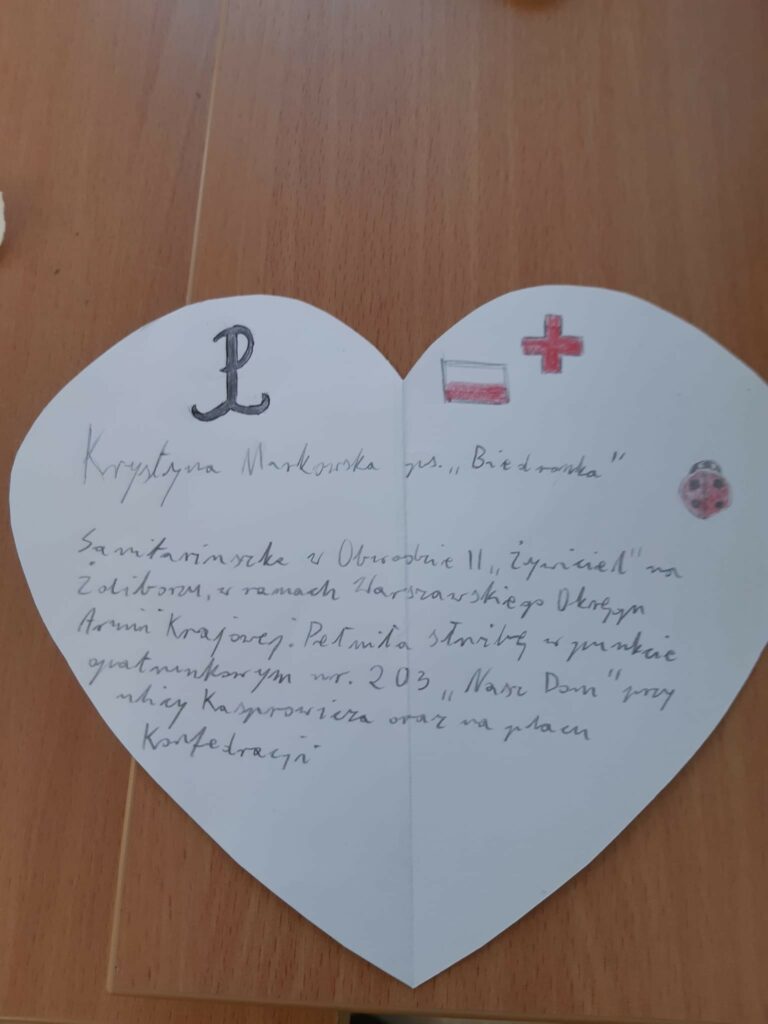 Krystyna Markowska ps. „Biedronka"
Sanitariuszka w Obwodzie II „Żywiciel" na
Żoliborzu, w ramach Warszawskiego Okręgu
Armii Krajowej. Pełniła służbę w punkcie
opatrunkowym nr. 203 „Nasz Dom" przy
ulicy Kasprowicza oraz na placu
Konfedracji